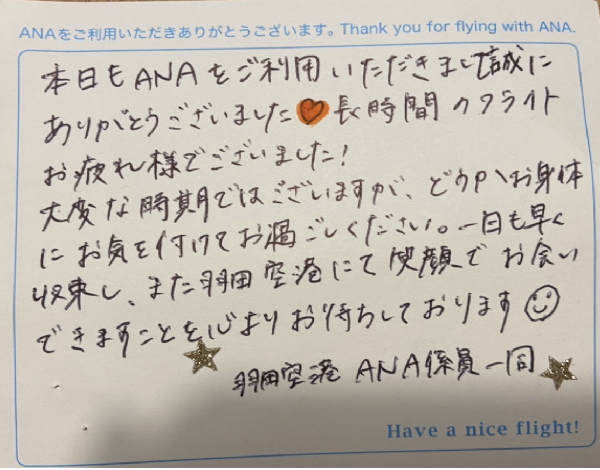 ANAをご利用いただきありがとうございます。Thank you for flying with ANA.
本日もANAをご利用いただきまして誠に
ありがとうございました♥長時間のフライト
お疲れ様でございました!
大変な時期ではございますが、どうかお身体
にお気を付けてお過ごしください。一日も早く
収束し、また羽田空港にて笑顔でお会い
できますことを心よりお待ちしております☺
羽田空港 ANA係員一同
Have a nice flight!